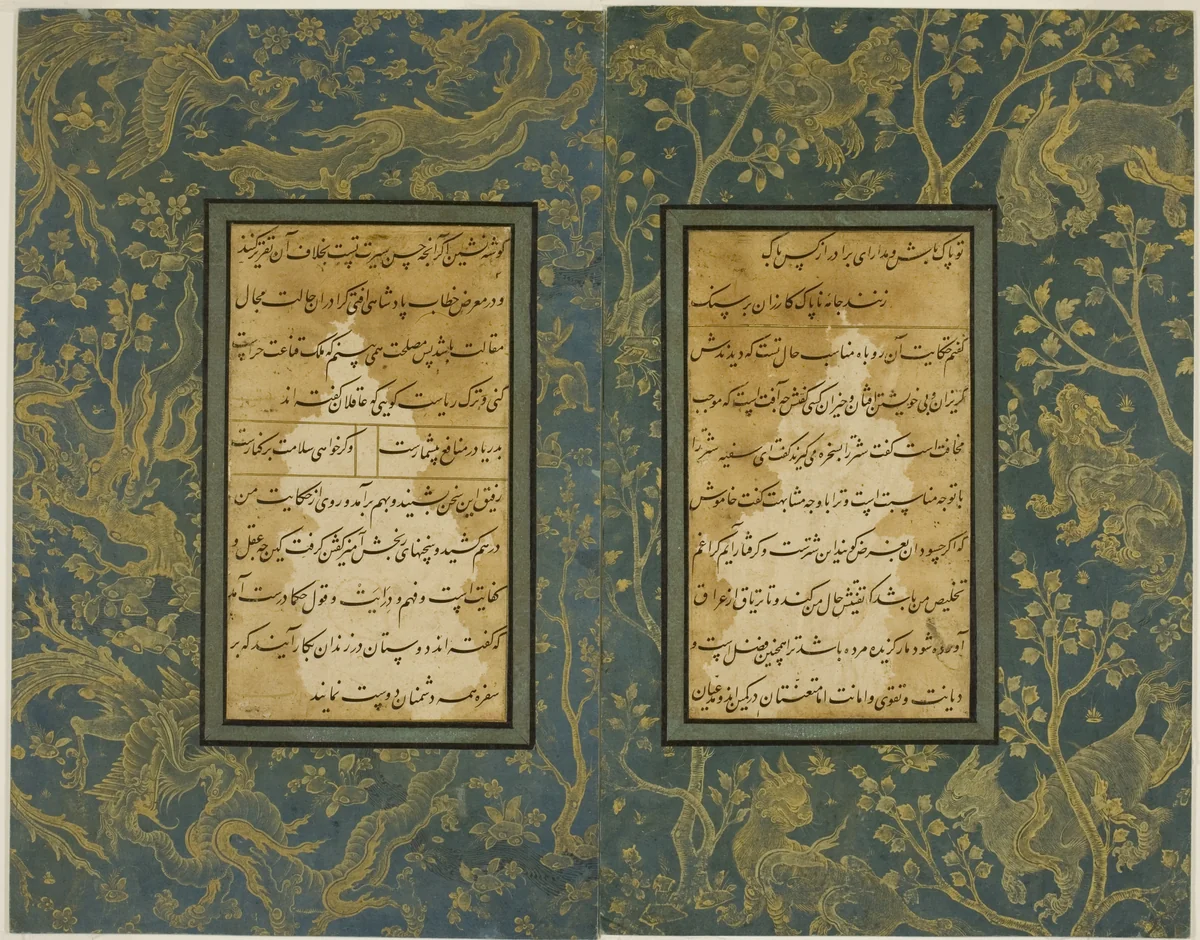 تو پاک باش و مدار ای برادر از کس باک
زنند جامه ناپاک کازران بر سنک
گفتم حکایت آن روباه مناسب حال تست که دیدندش
گریزان و بی خویشتن افتان و خیزان کسی گفتش چه آفت است که موجب
مخافت است گفت شتر را بسخره می گیرند گفت ای سفیه شتر را
با تو چه مناسبت است و ترا با و چه مشابهت گفت خاموش
که اگر حسودان بغرض گویند این شترست و گرفتار آیم کرا غم
تخلیص من باشد که تفتیش حال من کند و تا تریاق از عراق
آورده شود مار گزیده مرده باشد ترا همچنین فضل است و
دیانت و تقوی و امانت اما متعنتان در کمین اند و مدعیان
گوشه نشین اگر آنچه حسن سیرت تست بخلاف آن تقریر کنند
و در معرض خطاب پادشاهی افتی کرا در ان حالت مجال
مقالت باشد پس مصلحت همی بینم که ملک قناعت حراست
کنی و ترک ریاست گویی که عاقلان گفته اند
بدریا در منافع بیشمارست وگر خواهی سلامت بر کنارست
رفیق این سخن بشنید و بهم برآمد و روی از حکایت من
درهم کشید و سخنهای رنجش آمیز گفتن گرفت کین چه عقل و
کفایت است و فهم و درایت و قول حکما درست آمد
که گفته اند دوستان در زندان بکار آیند که بر
سفره همه دشمنان دوست نمایند